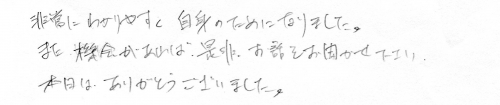 非常にわかりやすく自身のためになりました。
また機会があれば、是非、お話をお聞かせ下さい。
本日は、ありがとうございました。